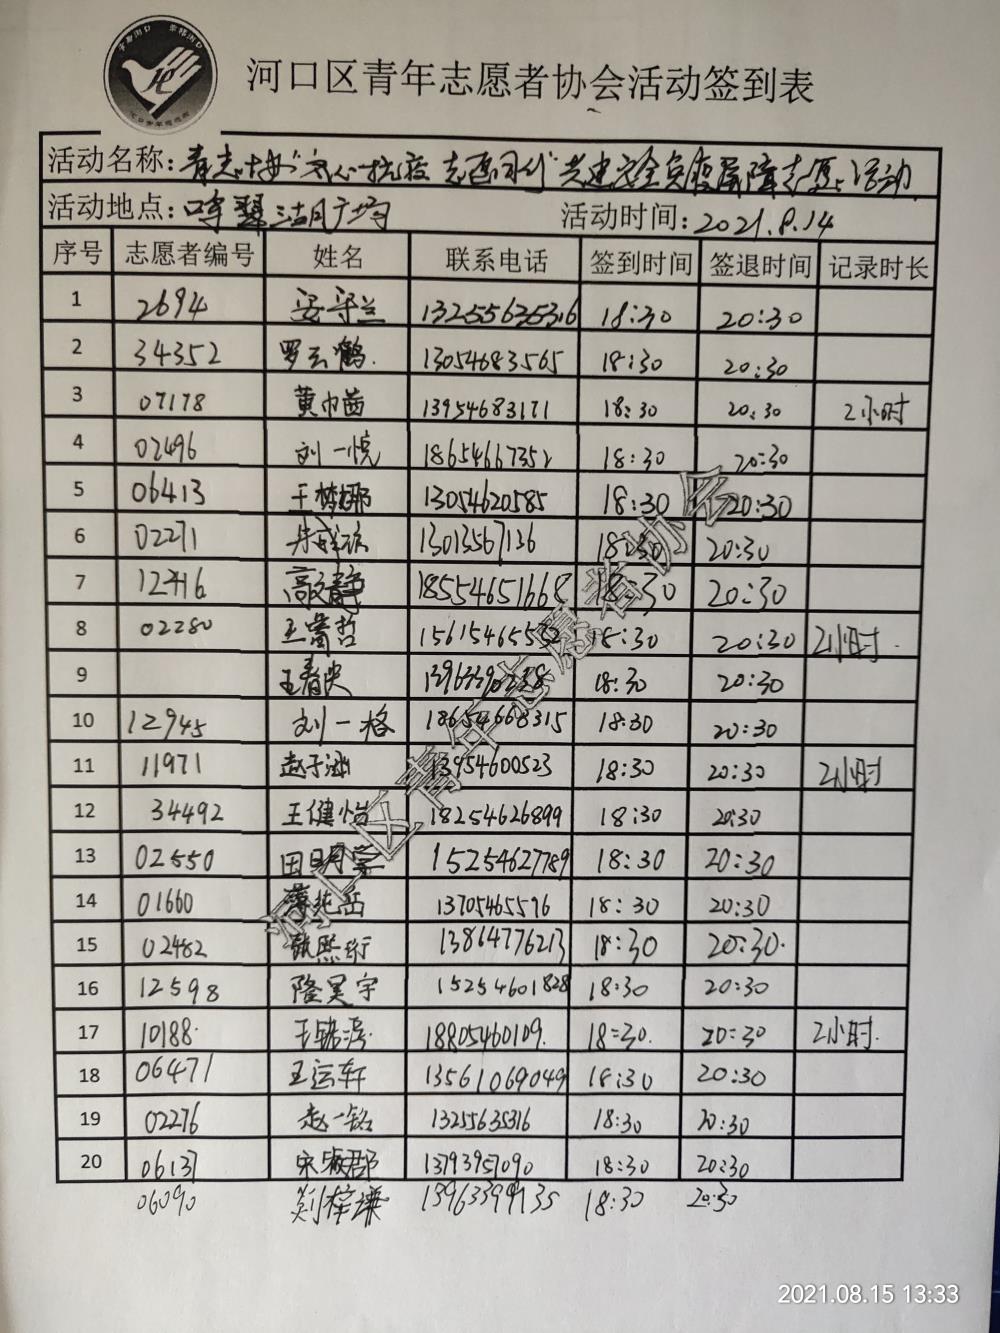 河口区青年志愿者协会活动签到表
活动名称: 共建安全免疫屏障志愿 活动
活动地点: 广场 活动时间: 2021.8.14
序号 志愿者编号 姓名 联系电话 签到时间 签退时间 记录时长
1 2694 安守兰 13255635316 18:30 20:30
2 34352 罗云鹤 13054683565 18:30 20:30
3 07178 黄巾茜 13954683171 18:30 20:30 2小时
4 02496 刘一悦 18654667352 18:30 20:30
5 06413 王梦娜 13054620585 18:30 20:30
6 02271 13013567136 18:30 20:30
7 高文静 18554651668 18:30 20:30
8 02280 18:30 20:30 2小时
9 王春央 18:30 20:30
10 12945 刘一格 18654668315 18:30 20:30
11 11971 赵子涵 13954600523 18:30 20:30 2小时
12 34492 王健怡 18254626899 18:30 20:30
13 02550 15254627789 18:30 20:30
14 01660 13705465576 18:30 20:30
15 02482 13864776213 18:30 20:30
16 12598 隆昊宇 15254601828 18:30 20:30
17 10188 18805460109 18:30 20:30 2小时
18 06471 王运轩 13561069049 18:30 20:30
19 02276 赵一铭 13255635316 18:30 20:30
20 06137 宋淑郡 13793957090 18:30 20:30
06090 13963399135 18:30 20:30
河口区青年志愿者协会
2021.08.15 13:33